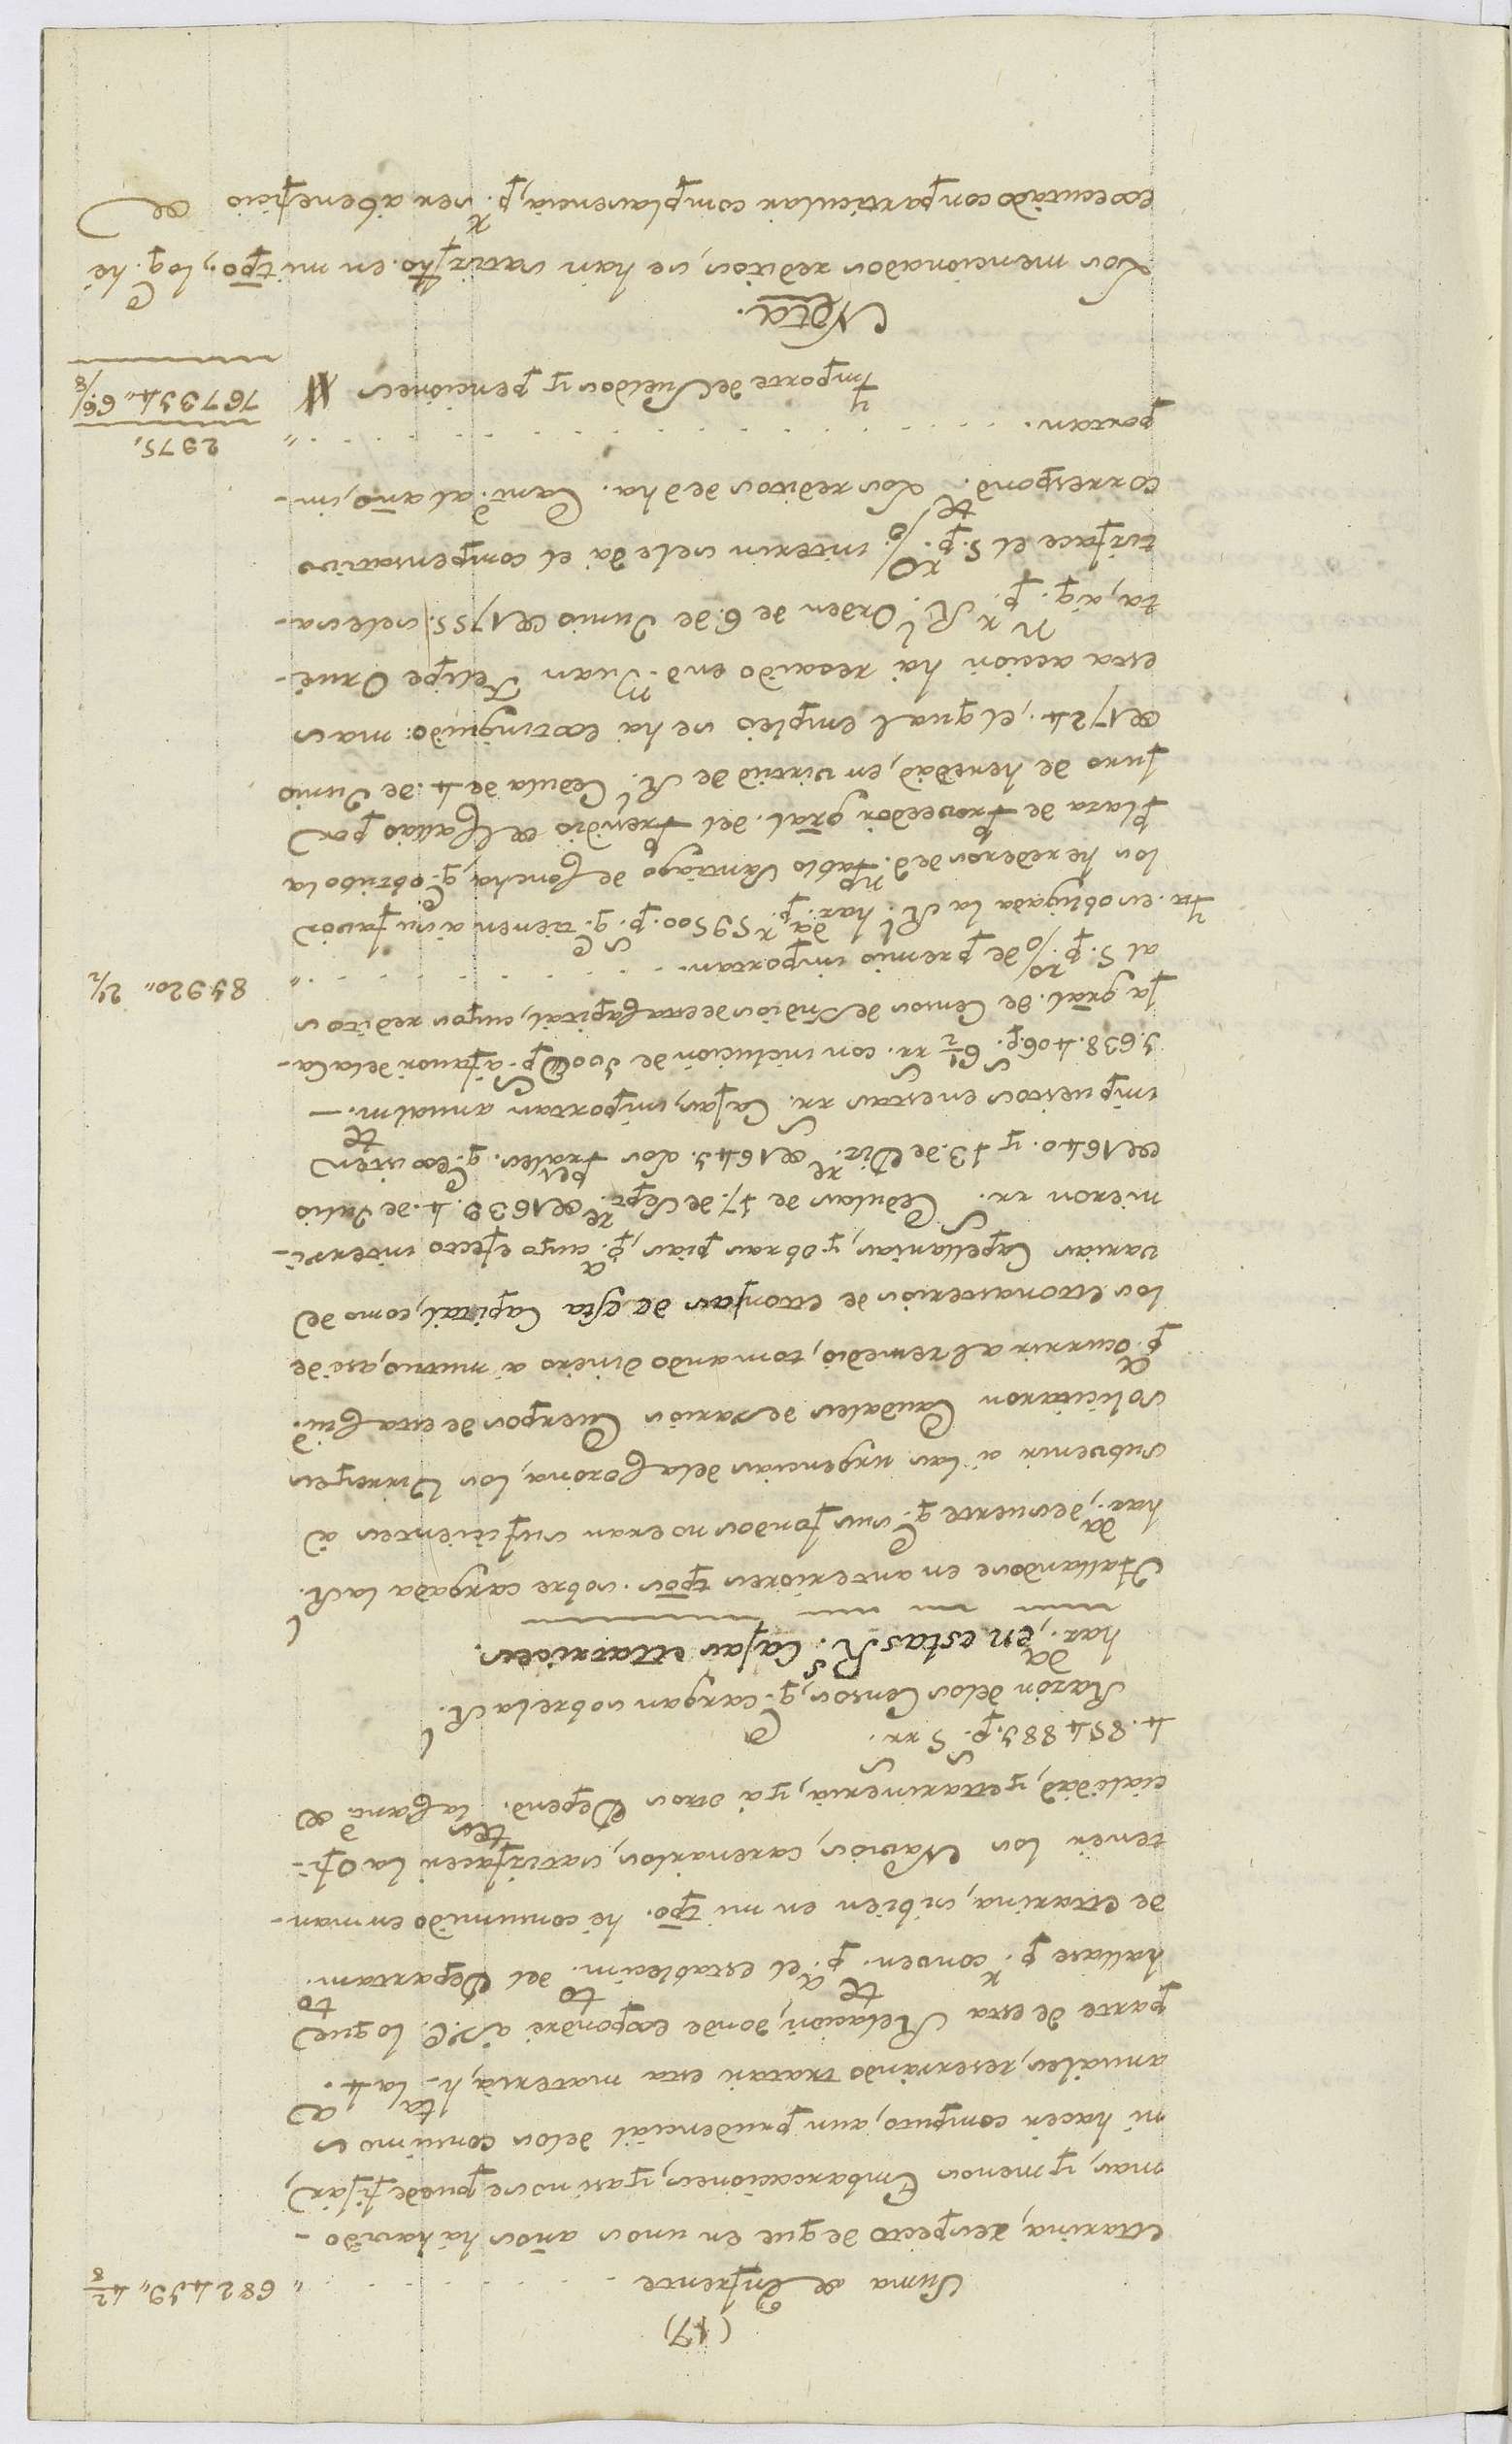 (17)
Suma de Enfrente . . . . . . . . . " 682439,, 4 2/8
Marina, respecto de que en unos años há havido
mas, y menos Embarcaciones, y asi no se puede fijar,
ni hacer computo, aun prudencial delos consumos
anuales, reservando tratar esta materia, ha. la 4.ta
parte de esta Relacion, donde expondré aV.E. lo que
hallase p.r conven.te p.a el establecim.to del Departam.to
de Marina, si bien en mi tpõ. hé consumido en man-
tener los Navios, carenarlos, satisfacer la Ofi-
cialidad, y Marineria, y á otros Depend.tes la Cant.d de
4.854883.p.s 5 rr.s
Razon delos Censos, q.e cargan sobre la R.l
haz.da, en estas R.s Cajas Matrices.
Hallandose en anteriores tpõs. sobre cargada la R.l
haz.da, de suerte q.e sus fondos no eran suficientes á
subvenir á las urgencias dela Corona, los Virreyes
solicitaron Caudales de varios Cuerpos de esta Ciu.d
p.a ocurrir al remedio, tomando dinero á mutuo, asi de
los Monasterios de Monjas de esta Capital, como de
varias Capellanias, y obras pias, p.a cuyo efecto intervi-
nieron rr.s Cedulas de 17. de Sept.re de 1639. 4. de Julio
de 1640. y 13. de Diz.re de 1643. Los Pra̅les. q.e existen
impuestos en estas rr.s Cajas, importan anualm.te —
3.638.406.p.s 6 1/2 rr.s con inclucion de 300 p.s á favor dela Ca-
ja gra̅l. de Censos de Indios de esta Capital, cuyos reditos
al 5. p.r% de premio importan. . . . . . . . . " 83920,, 2 1/2
Yt̅a. es obligada la R.l haz.da p.r 59500. p.s q.e tienen á su favor
los herederos de d.n Pablo Santiago de Concha, q.e obtubo la
Plaza de Proveedor gra̅l. del Precidio del Callao por
Juro de heredad, en virtud de R.l Cedula de 4. de Junio
de 1724., el qual empleo se ha extinguido: mas
esta accion há recaido en d.n Juan Felipe Orue-
ta, á q.n p.r R.l Orden de 6. de Junio de 1755. se le sa-
tisface el 5. p.r% interin se le dá el compensativo
correspond.te Los reditos de dha. Cant.d al año, im-
portan. . . . . . . . . . . . . . . . . " 2975,
Importe de Sueldos y penciones 767334,, 6 6/8
Nota.
Los mencionados reditos, se han satisfho. en mi tpõ., lo q.e hé
executado con particular complacencia, p.r ser á beneficio de